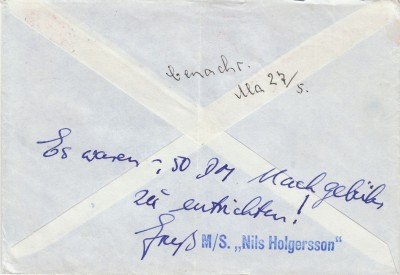 benachr.
Ma 27/5.
Es waren -,50 DM Nachgebühr
zu entrichten!
Gruß M/S. „Nils Holgersson"